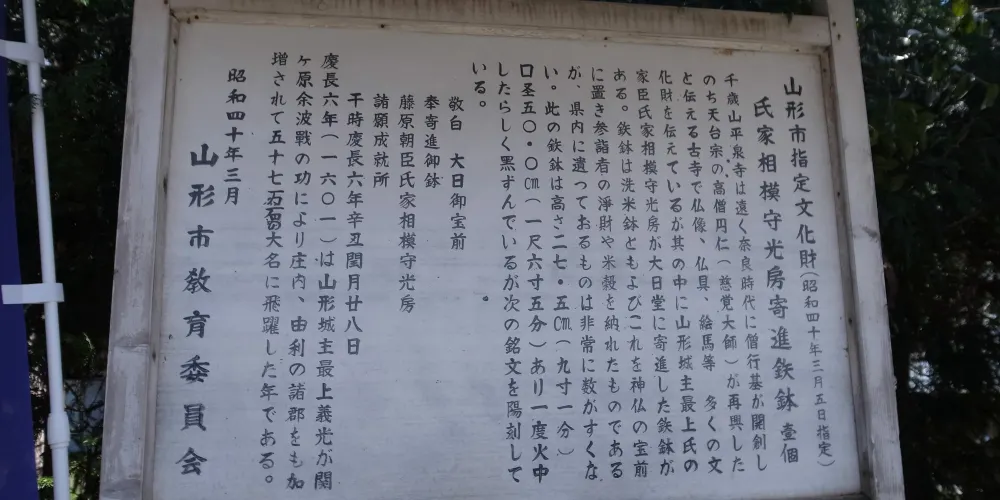 山形市指定文化財(昭和四十年三月五日指定)
氏家相模守光房寄進鉄鉢 壹個
千歳山平泉寺は遠く奈良時代に僧行基が開創し
のち天台宗の高僧円仁(慈覚大師)が再興した
と伝える古寺で仏像、仏具、絵馬等 多くの文
化財を伝えているが其の中に山形城主最上氏の
家臣氏家相模守光房が大日堂に寄進した鉄鉢が
ある。鉄鉢は洗米鉢ともよびこれを神仏の宝前
に置き参詣者の淨財や米穀を納れたものである
が、県内に遺っておるものは非常に数がすくな
い。此の鉄鉢は高さ二七・五㎝(九寸一分)
口圣五〇・〇㎝(一尺六寸五分)あり一度火中
したらしく黒ずんでいるが次の銘文を陽刻して
いる。
敬白 大日御宝前
奉寄進御鉢
藤原朝臣氏家相模守光房
諸願成就所
干時慶長六年辛丑閏月廿八日
慶長六年(一六〇一)は山形城主最上義光が関
ヶ原余波戦の功により庄内、由利の諸郡をも加
増されて五十七万石の大名に飛躍した年である。
昭和四十年三月
山形市教育委員会